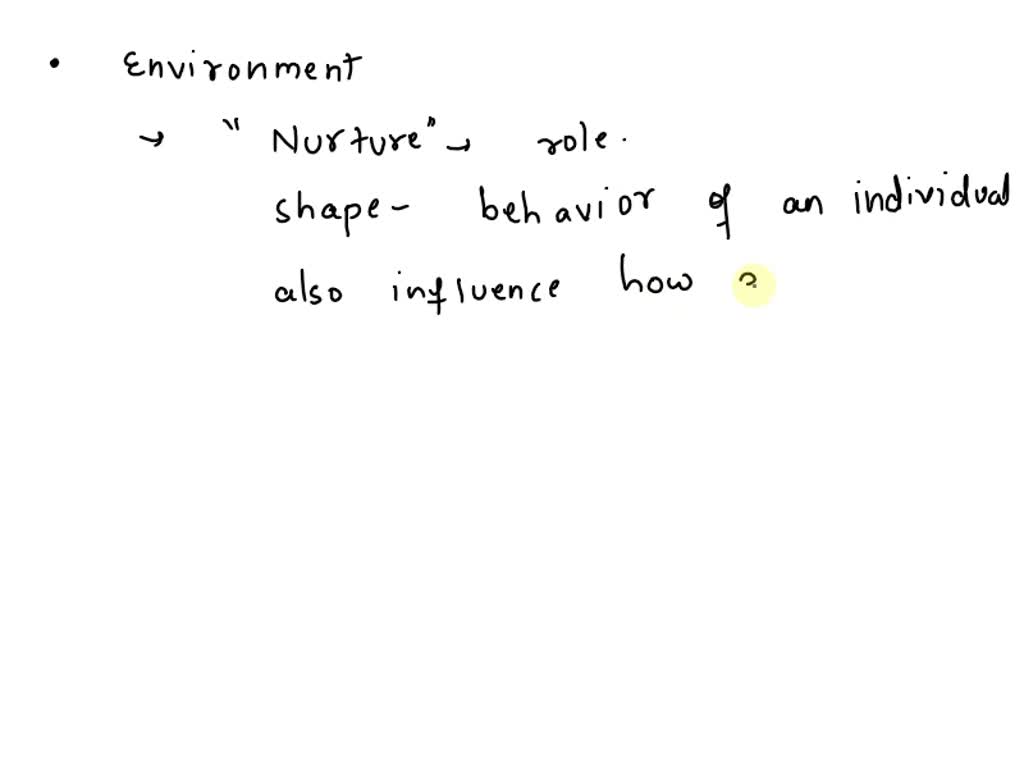 • Environment
→ "Nurture" → role.
shape - behavior of an individual
also influence how